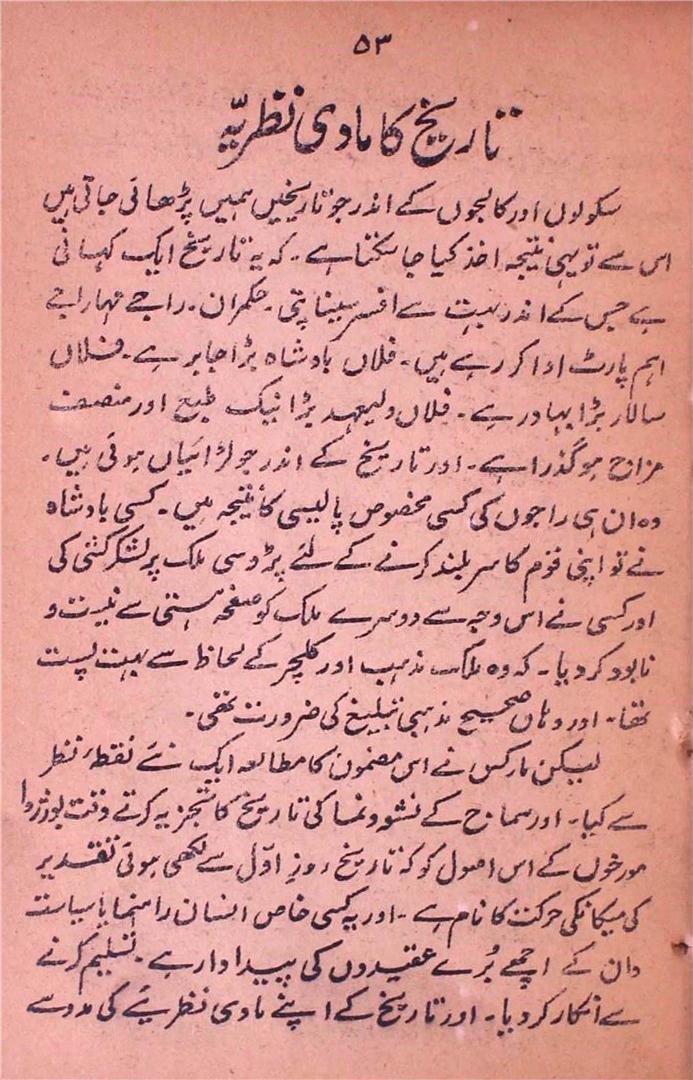 ۵۳
تاریخ کا مادی نظریّہ
سکولوں اور کالجوں کے اندر جو تاریخیں ہمیں پڑھائی جاتی ہیں
اس سے تو یہی نتیجہ اخذ کیا جا سکتا ہے۔ کہ یہ تاریخ ایک کہانی
ہے جس کے اندر بہت سے افسر سیناپتی۔ حکمران۔ راجے مہاراجے
اہم پارٹ ادا کر رہے ہیں۔ فلاں بادشاہ بڑا جابر ہے۔ فلاں
سالار بڑا بہادر ہے۔ فلاں ولیعہد بڑا نیک طبع اور منصف
مزاج ہو گذرا ہے۔ اور تاریخ کے اندر جو لڑائیاں ہوئی ہیں۔
وہ ان ہی راجوں کی کسی مخصوص پالیسی کا نتیجہ ہیں۔ کسی بادشاہ
نے تو اپنی قوم کا سر بلند کرنے کے لئے پڑوسی ملک پر لشکر کشی کی
اور کسی نے اس وجہ سے دوسرے ملک کو صفحہ ہستی سے نیست و
نابود کر دیا۔ کہ وہ ملک مذہب اور کلچر کے لحاظ سے بہت پست
تھا۔ اور وہاں صحیح مذہبی تبلیغ کی ضرورت تھی۔
لیکن مارکس نے اس مضمون کا مطالعہ ایک نئے نقطۂ نظر
سے کیا۔ اور سماج کے نشوونما کی تاریخ کا تجزیہ کرتے وقت بورژوا
مورخوں کے اس اصول کو کہ تاریخ روزِ اوّل سے لکھی ہوئی تقدیر
کی میکانکی حرکت کا نام ہے۔ اور یہ کسی خاص انسان راہنما یا سیاست
دان کے اچھے بُرے عقیدوں کی پیداوار ہے۔ تسلیم کرنے
سے انکار کر دیا۔ اور تاریخ کے اپنے مادی نظریئے کی مدد سے